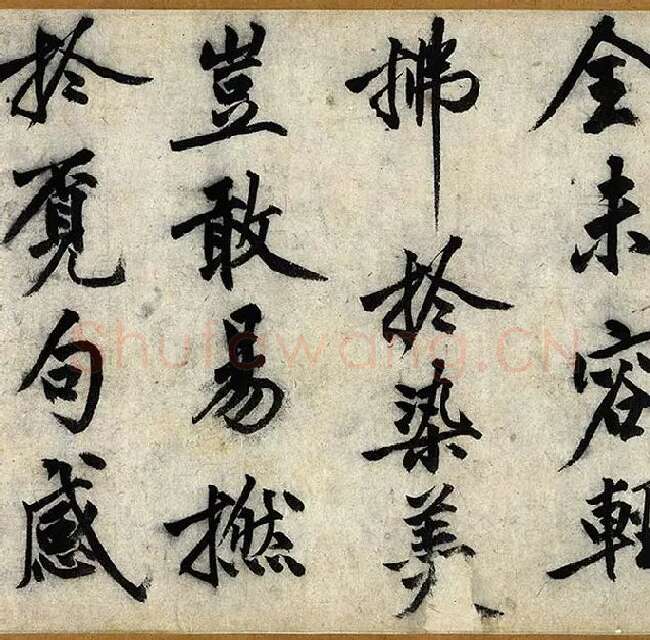 全未容輕
拂扵染美
豈敢易撚
扵覓句感
Shufawang.CN